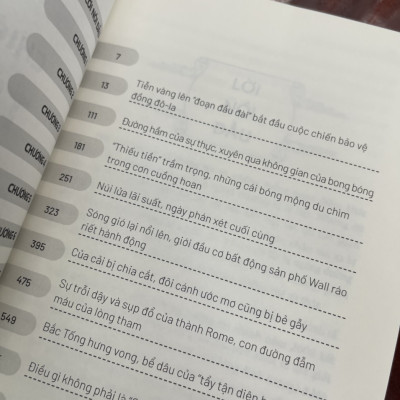 7
13
Tiễn vàng lên "đoạn đầu đài" bắt đầu cuộc chiến bảo vệ
đồng đô-la
111
Đường hầm của sự thực, xuyên qua không gian của bong bóng
181
"Thiếu tiền" trầm trọng, những cái bóng mộng du chìm
trong cơn cuồng hoan
251
Núi lửa lãi suất, ngày phán xét cuối cùng
323
Sóng gió lại nổi lên, giới đầu cơ bất động sản phố Wall ráo
riết hành động
395
Của cải bị chia cắt, đôi cánh ước mơ cũng bị bẻ gẫy
475
Sự trỗi dậy và sụp đổ của thành Rome, con đường đẫm
máu của lòng tham
549
Bắc Tống hưng vong, bể dâu của "tẩy tận diện
Điều gì không phải là
CHƯƠNG
CHƯƠNG
CHƯƠNG
CHƯƠNG
CHƯƠNG